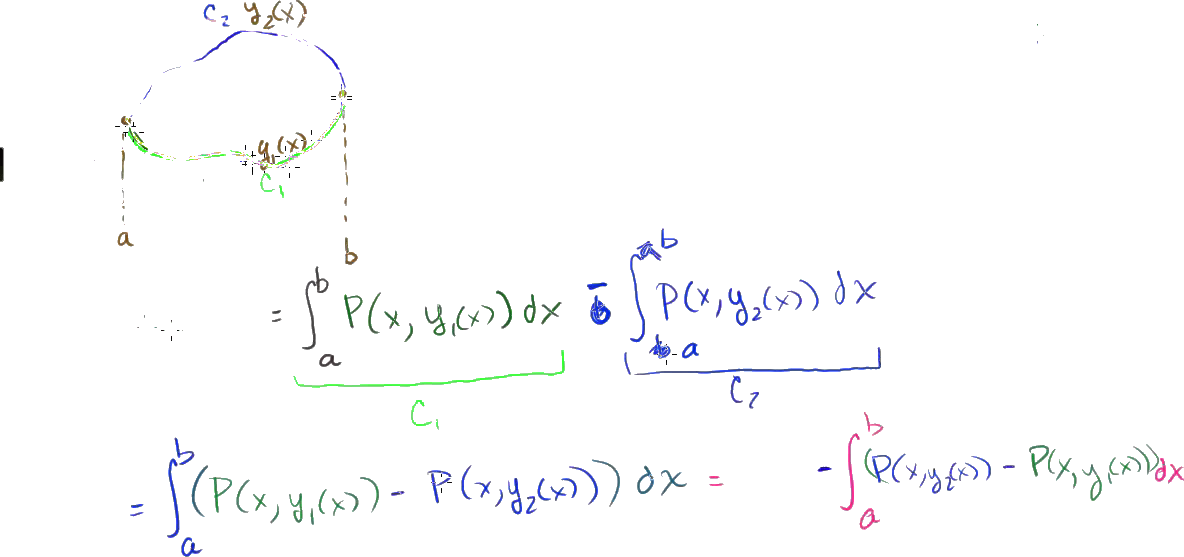 C₂ y₂(x)
y₁(x)
C₁
a
b
= ∫ₐᵇ P(x, y₁(x)) dx - ∫ₐᵇ P(x, y₂(x)) dx
C₁ C₂
= ∫ₐᵇ (P(x, y₁(x)) - P(x, y₂(x))) dx = - ∫ₐᵇ (P(x, y₂(x)) - P(x, y₁(x))) dx